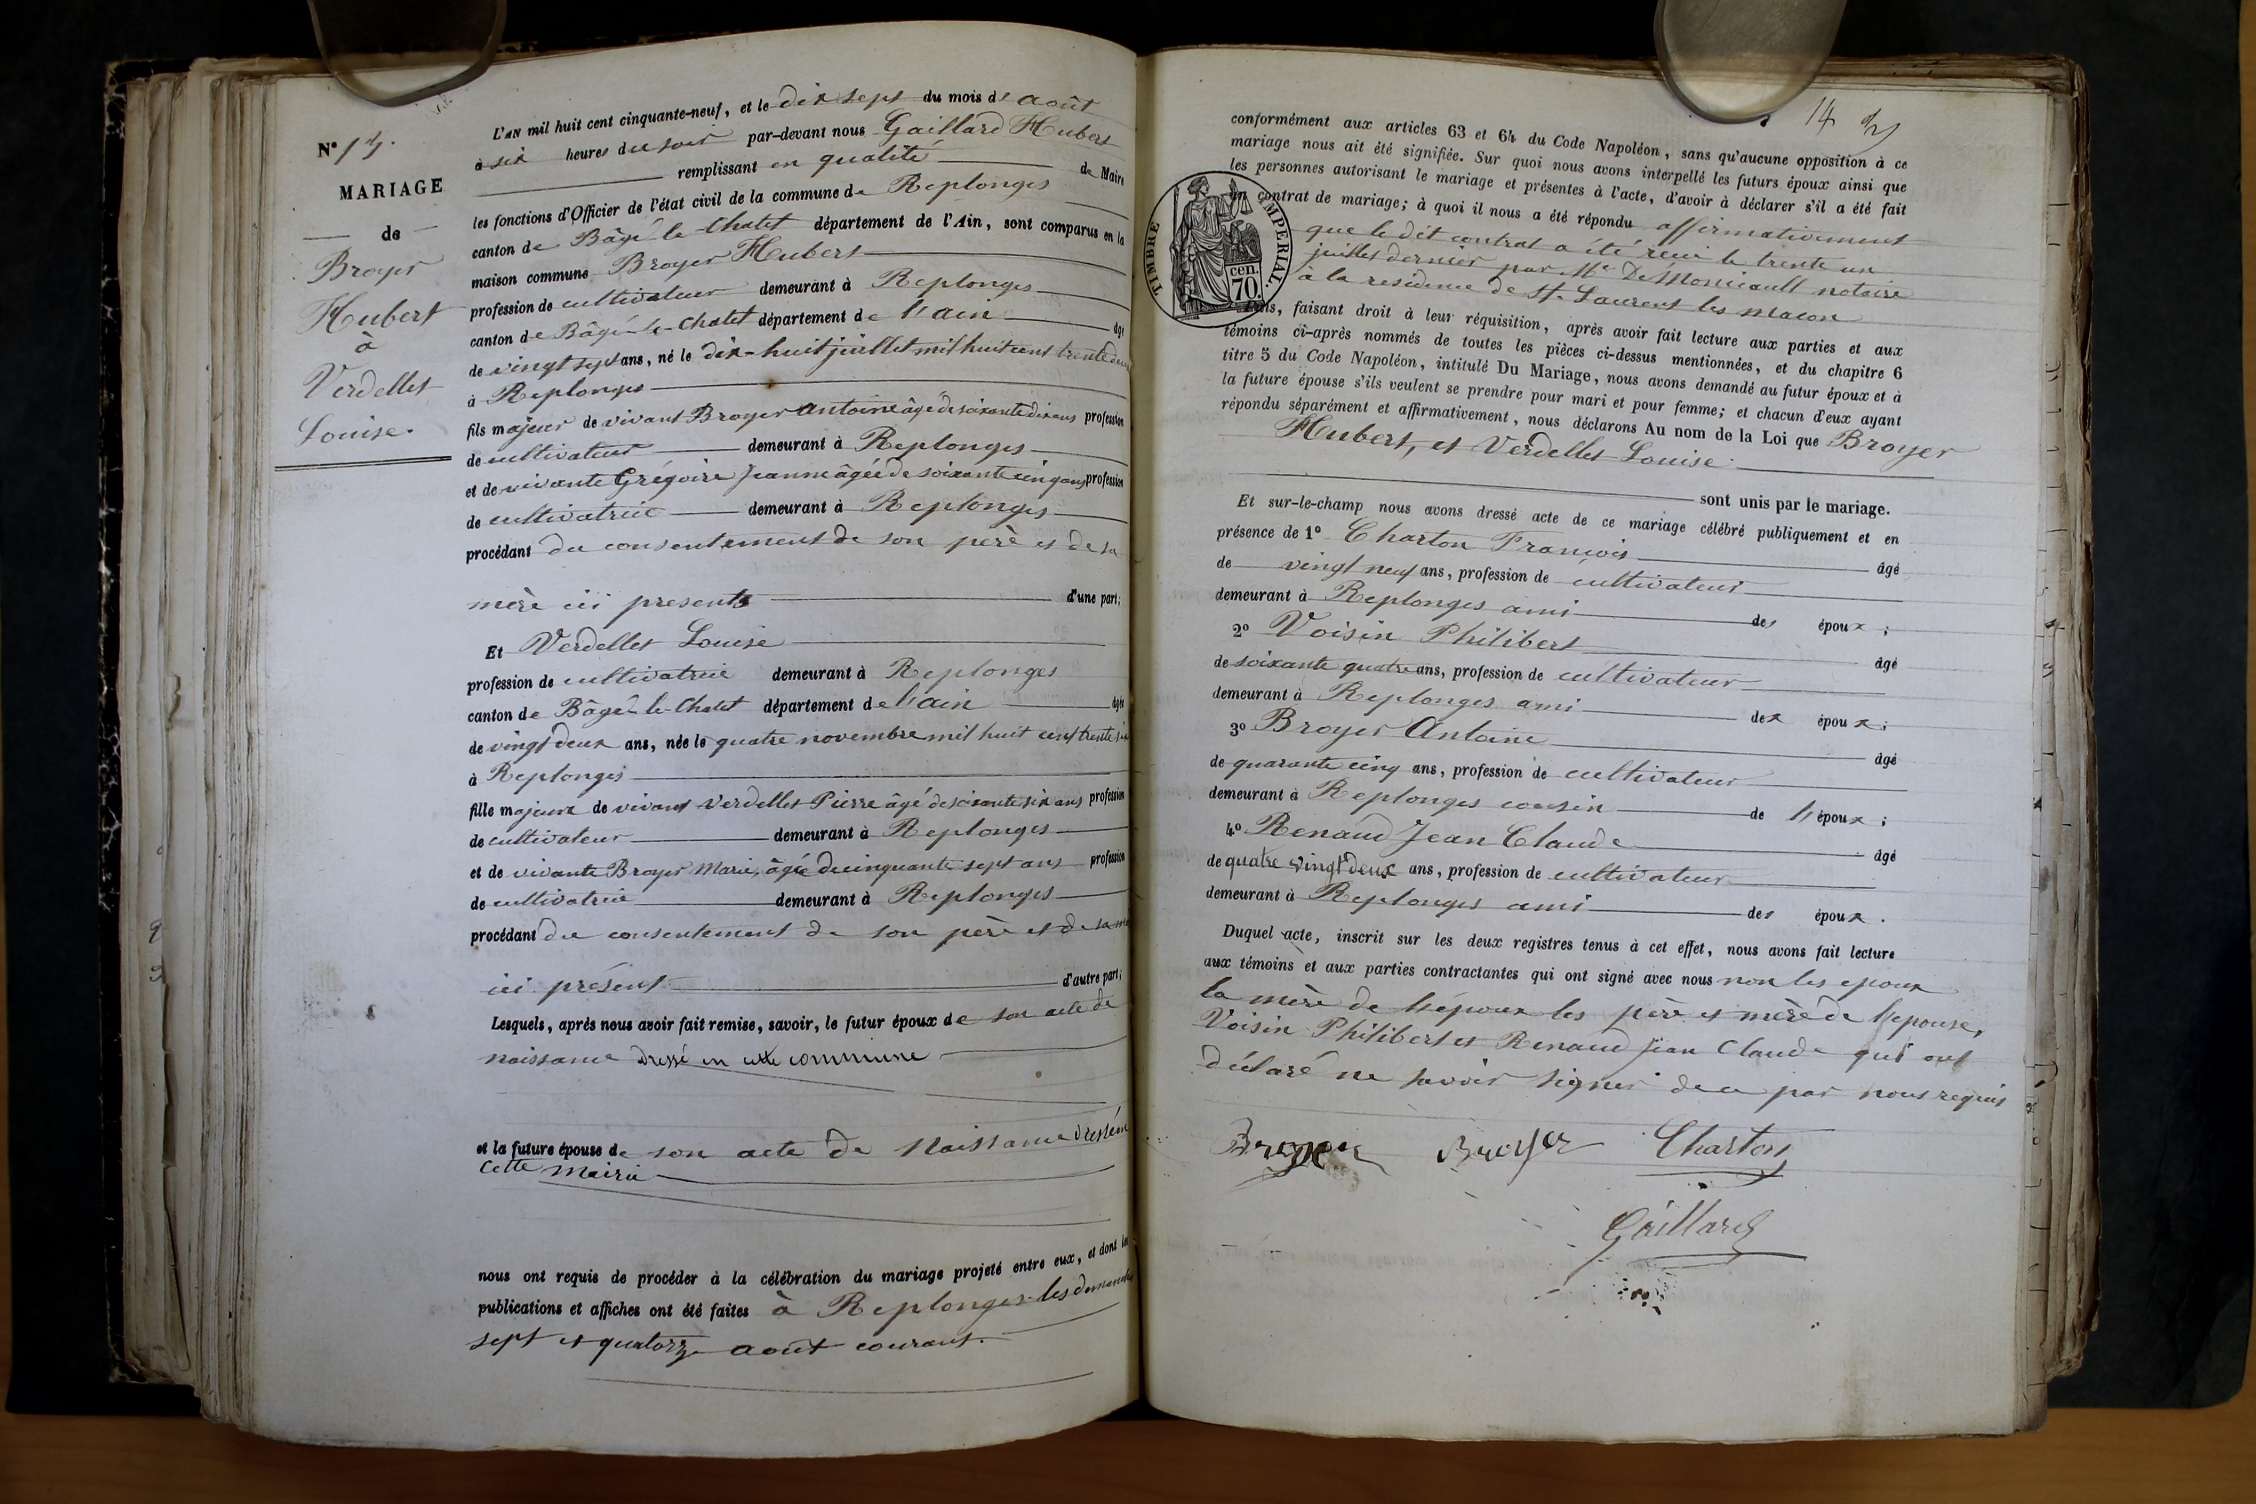 N° 13.
MARIAGE
de
Broyer
Hubert
à
Verdellet
Louise.
L'AN mil huit cent cinquante-neuf, et le dix sept du mois d'août
à six heures du soir par-devant nous Gaillard Hubert
remplissant en qualité de Maire
les fonctions d'Officier de l'état civil de la commune de Replonges
canton de Bâgé-le-Chatel département de l'Ain, sont comparus en la
maison commune Broyer Hubert
profession de cultivateur demeurant à Replonges
canton de Bâgé-le-Chatel département de l'ain âgé
de vingt sept ans, né le dix-huit juillet mil huit cent trente deux
à Replonges
fils majeur de vivant Broyer antoine âgé de soixante dix ans profession
de cultivateur demeurant à Replonges
et de vivante Grégoire Jeanne âgée de soixante cinq ans profession
de cultivatrice demeurant à Replonges
procédant du consentement de son père et de sa
mère ici presents d'une part;
Et Verdellet Louise
profession de cultivatrice demeurant à Replonges
canton de Bâgé-le-Chatel département de l'ain âgée
de vingt deux ans, née le quatre novembre mil huit cent trente six
à Replonges
fille majeure de vivant Verdellet Pierre âgé de soixante six ans profession
de cultivateur demeurant à Replonges
et de vivante Broyer Marie, âgée de cinquante sept ans profession
de cultivatrice demeurant à Replonges
procédant du consentement de son père et de sa mère
ici présent d'autre part;
Lesquels, après nous avoir fait remise, savoir, le futur époux de son acte de
naissance dressé en cette commune
et la future épouse de son acte de Naissance dressé en
cette mairie
nous ont requis de procéder à la célébration du mariage projeté entre eux, et dont les
publications et affiches ont été faites à Replonges les dimanches
sept et quatorze août courant.
14
conformément aux articles 63 et 64 du Code Napoléon, sans qu'aucune opposition à ce
mariage nous ait été signifiée. Sur quoi nous avons interpellé les futurs époux ainsi que
les personnes autorisant le mariage et présentes à l'acte, d'avoir à déclarer s'il a été fait
un contrat de mariage; à quoi il nous a été répondu affirmativement
que le dit contrat a été reçu le trente un
juillet dernier par Me DeMoniault notaire
à la residence de St. Laurent les macon
TIMBRE IMPERIAL.
cen.
70.
Nous, faisant droit à leur réquisition, après avoir fait lecture aux parties et aux
témoins ci-après nommés de toutes les pièces ci-dessus mentionnées, et du chapitre 6
titre 5 du Code Napoléon, intitulé Du Mariage, nous avons demandé au futur époux et à
la future épouse s'ils veulent se prendre pour mari et pour femme; et chacun d'eux ayant
répondu séparément et affirmativement, nous déclarons Au nom de la Loi que Broyer
Hubert, et Verdellet Louise
sont unis par le mariage.
Et sur-le-champ nous avons dressé acte de ce mariage célébré publiquement et en
présence de 1° Charton François âgé
de vingt neuf ans, profession de cultivateur
demeurant à Replonges ami des époux;
2° Voisin Philibert âgé
de soixante quatre ans, profession de cultivateur
demeurant à Replonges ami des époux;
3° Broyer Antoine âgé
de quarante cinq ans, profession de cultivateur
demeurant à Replonges cousin de l'époux;
4° Renaud Jean Claude âgé
de quatre vingt deux ans, profession de cultivateur
demeurant à Replonges ami des époux.
Duquel acte, inscrit sur les deux registres tenus à cet effet, nous avons fait lecture
aux témoins et aux parties contractantes qui ont signé avec nous non les epoux
la mère de l'époux les père et mère de l'epouse,
Voisin Philibert et Renaud Jean Claude qui ont
déclaré ne savoir signer de ce par nous requis
Broyer Broyer Charton
Gaillard